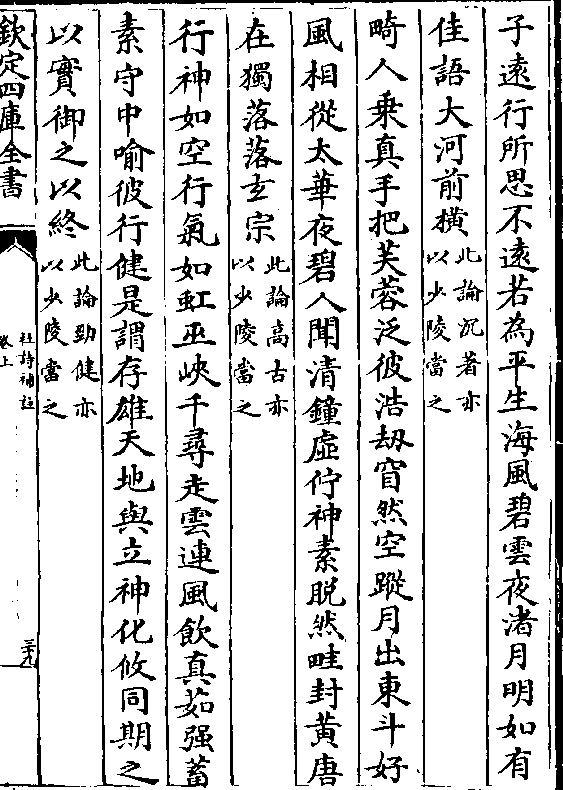 子遠行所思不遠若為平生海風碧雲夜渚月明如有
佳語大河前橫此論沉著亦以少陵當之
畸人乗真手把芙蓉泛彼浩劫窅然空蹤月出東斗好
風相從太華夜碧人聞清鐘虛佇神素脫然畦封黃唐
在獨落落玄宗此論高古亦以少陵當之
行神如空行氣如虹巫峽千尋走雲連風飲真茹强蓄
素守中喻彼行健是謂存雄天地與立神化攸同期之
以實御之以終此論勁健亦以少陵當之
欽定四庫全書
杜詩捃
卷上
三十九